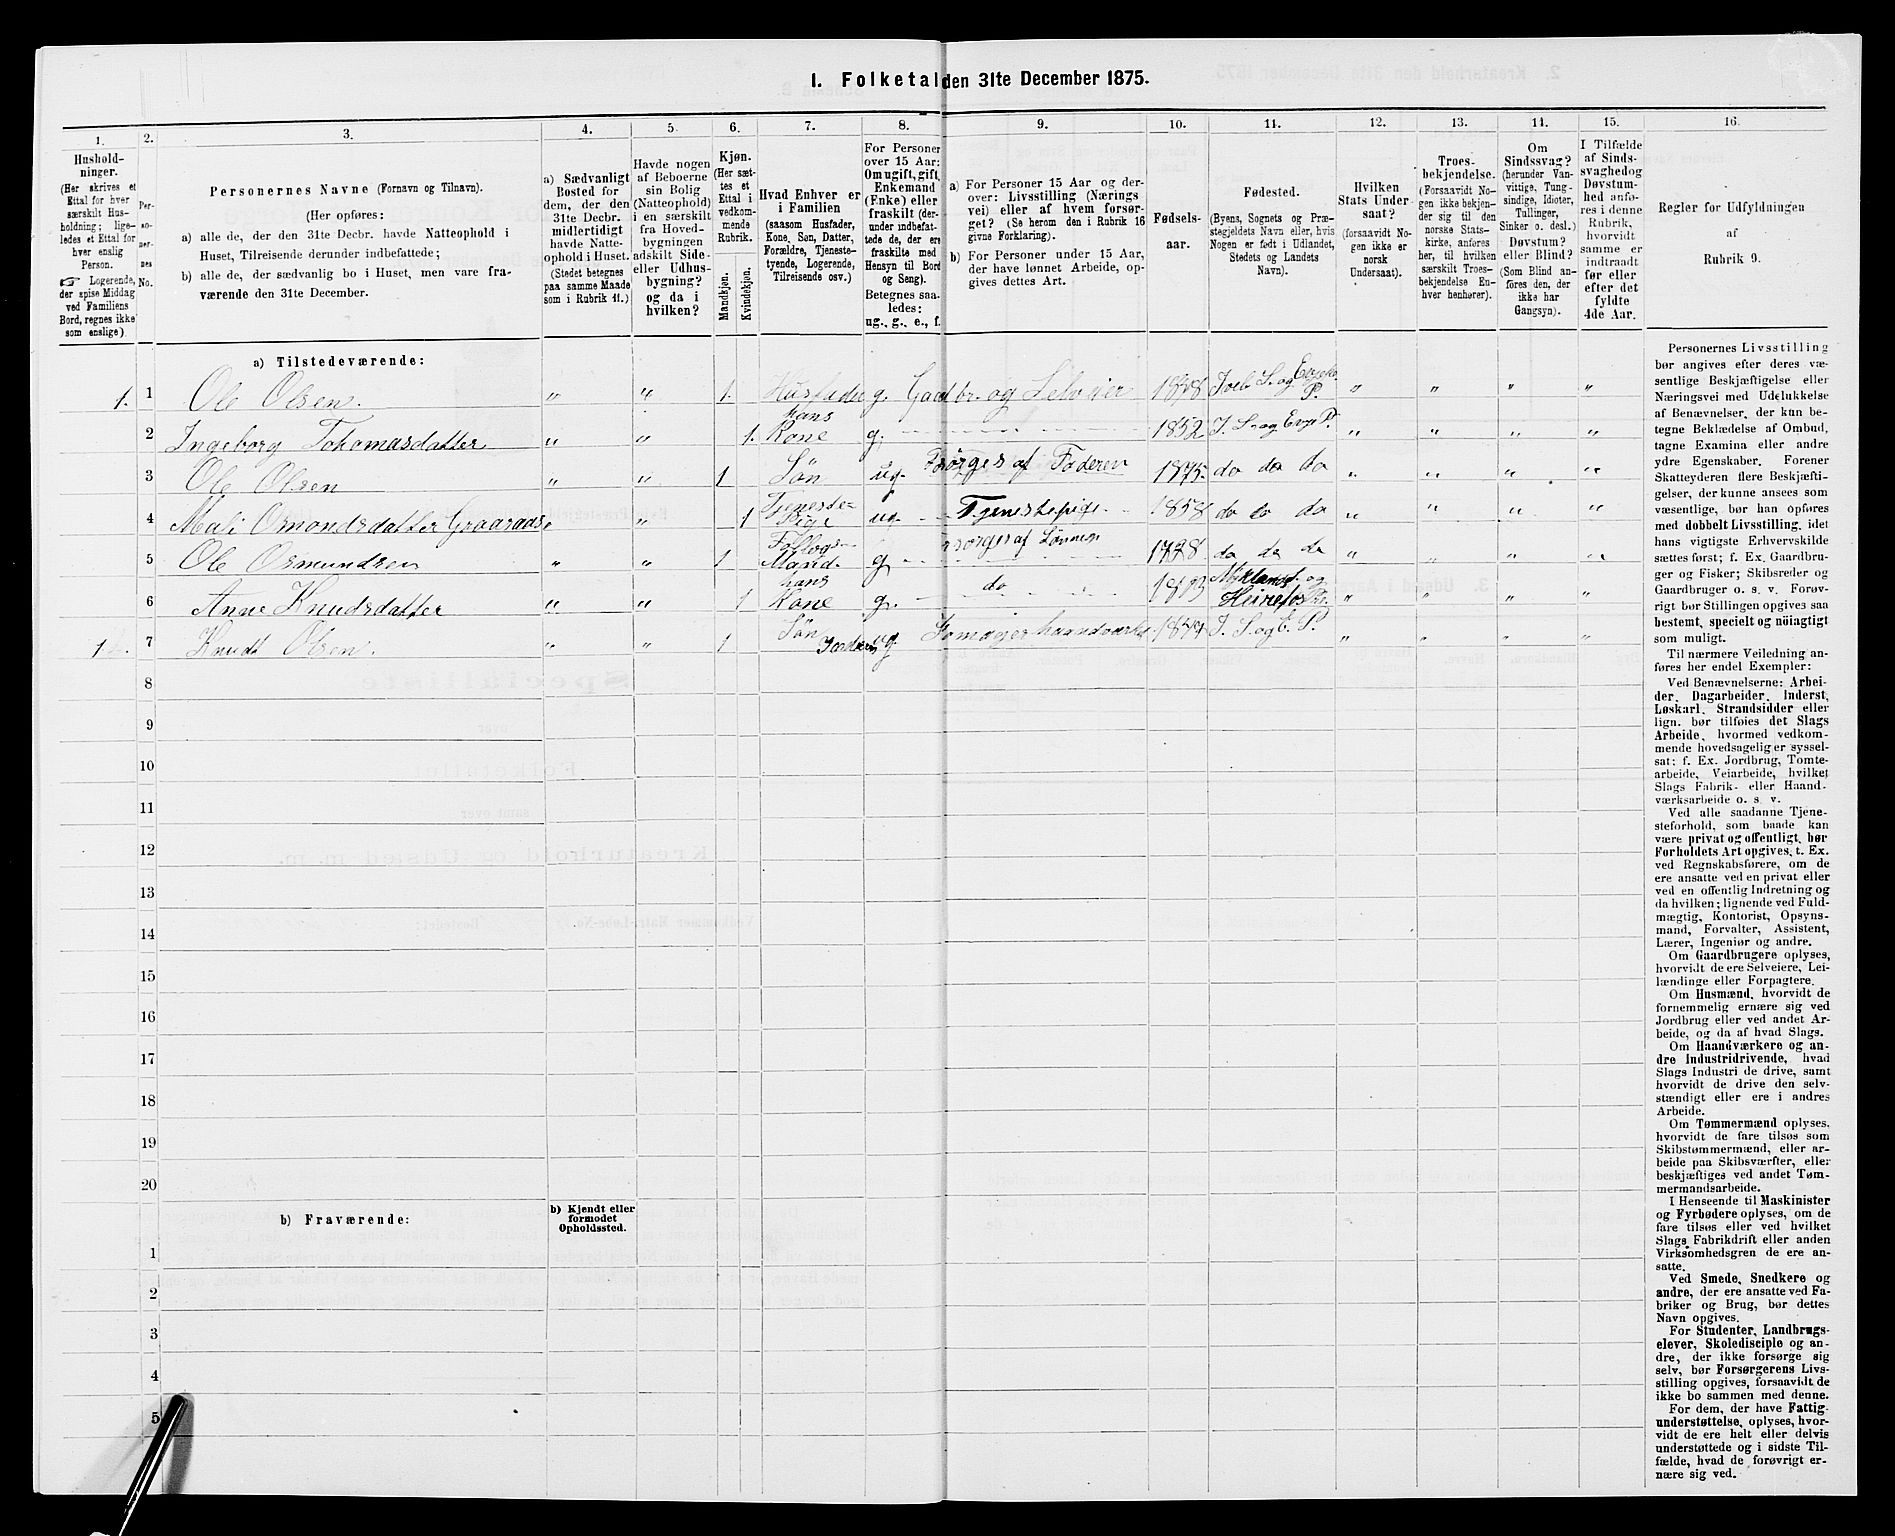 1. Folketal den 31te December 1875.
1. 2. 3. 4. 5. 6. 7. 8. 9. 10. 11. 12. 13. 14. 15. 16.
Hushold-
ninger.
(Her skrives et
Ettal for hver
særskilt Hus-
holdning; lige-
ledes et Ettal for
hver enslig
Person.
☞ Logerende,
der spise Middag
ved Familiens
Bord, regnes ikke
som enslige)
Per-
so-
ner-
nes
No.
Personernes Navne (Fornavn og Tilnavn).
(Her opføres:
a) alle de, der den 31te Decbr. havde Natteophold i
Huset, Tilreisende derunder indbefattede;
b) alle de, der sædvanlig bo i Huset, men vare fra-
værende den 31te December.
a) Sædvanligt
Bosted for
dem, der den
31te Decbr.
midlertidigt
havde Natte-
ophold i Huset.
(Stedet betegnes
paa samme Maade
som i Rubrik 11.)
Havde nogen
af Beboerne
sin Bolig
(Natteophold)
i en særskilt
fra Hoved-
bygningen
adskilt Side-
eller Udhus-
bygning?
og da i
hvilken?
Kjøn.
(Her sæt-
tes et
Ettal i
vedkom-
mende
Rubrik.
Mandkjøn.
Kvindekjøn.
Hvad Enhver er
i Familien
(saasom Husfader,
Kone, Søn, Datter,
Forældre, Tjeneste-
tyende, Logerende,
Tilreisende osv.)
For Personer
over 15 Aar:
Om ugift, gift,
Enkemand
(Enke) eller
fraskilt (der-
under indbefat-
tede de, der ere
fraskilte med
Hensyn til Bord
og Seng).
Betegnes saa-
ledes:
ug., g., e., f.
a) For Personer 15 Aar og der-
over: Livsstilling (Nærings
vei) eller af hvem forsør-
get? (Se herom den i Rubrik 16
givne Forklaring).
b) For Personer under 15 Aar,
der have lønnet Arbeide, op-
gives dettes Art.
Fødsels-
aar.
Fødested.
(Byens, Sognets og Præ-
stegjeldets Navn eller, hvis
Nogen er født i Udlandet,
Stedets og Landets
Navn).
Hvilken
Stats Under
saat?
(forsaavidt No-
gen ikke er
norsk
Undersaat).
Troes-
bekjendelse.
(Forsaavidt No-
gen ikke bekjen-
der sig til den
norske Stats-
kirke, anføres
her, til hvilken
særskilt Troes-
bekjendelse En-
hver henhører).
Om
Sindssvag?
(herunder Van-
vittige, Tung-
sindige, Idioter,
Tullinger,
Sinker o. desl.)
Døvstum?
eller Blind?
(Som Blind an-
føres den, der
ikke har
Gangsyn).
I Tilfælde
af Sinds-
svaghed og
Døvstum-
hed anfø-
res i denne
Rubrik,
hvorvidt
samme er
indtraadt
før eller
efter det
fyldte
4de Aar.
Regler for Udfyldningen
af
Rubrik 9.
a) Tilstedeværende:
1. 1 Ole Olsen. " " 1. Husfader g. Gaardbr. og Selveier 1848 " " " "
2 Ingeborg Tohomasdatter " " 1. hans Kone g. 1852 " " " "
3 Ole Olsen " " 1 Søn ug. Forsørges af Faderen 1875. do do do " " " "
4 Mali Osmondsdatter Graaraas " " 1 Tjeneste-Pige ug. Tjenestepige 1858 do do do " " " "
5 Ole Osmundsen " " 1 Mand. g. Forsørges af Sønnen do do do " " " "
6 Anne Knudsdatter " " 1 hans Kone g. do 1813 Myklands S. og " " " "
1 7 Knudt Olsen. " " 1 Søn g. " " " "
8
9
10
11
12
13
14
15
16
17
18
19
20
b) Fraværende:
b) Kjendt eller
formodet
Opholdssted.
1
2
3
4
5
Personernes Livsstilling
bør angives efter deres væ-
sentlige Beskjæftigelse eller
Næringsvei med Udelukkelse
af Benævnelser, der kun be-
tegne Beklædelse af Ombud,
tagne Examina eller andre
ydre Egenskaber. Forener
Skatteyderen flere Beskjæfti-
gelser, der kunne ansees som
væsentlige, bør han opføres
med dobbelt Livsstilling, idet
hans vigtigste Erhvervskilde
sættes først; f. Ex. Gaardbru-
ger og Fisker; Skibsreder og
Gaardbruger o. s. v. Forøv-
rigt bør Stillingen opgives saa
bestemt, specielt og nöiagtigt
som muligt.
Til nærmere Veiledning an-
føres her endel Exempler:
Ved Benævnelserne: Arbei-
der, Dagarbeider, Inderst,
Løskarl, Strandsidder eller
lign. bør tilføies det Slags
Arbeide, hvormed vedkom-
mende hovedsagelig er syssel-
sat; f. Ex. Jordbrug, Tomte-
arbeide, Veiarbeide, hvilket
Slags Fabrik- eller Haand-
værksarbeide o. s. v.
Ved alle saadanne Tjene-
steforhold, som baade kan
være privat og offentligt, bør
Forholdets Art opgives, t. Ex.
ved Regnskabsførere, om de
ere ansatte ved en privat eller
ved en offentlig Indretning og
da hvilken; lignende ved Fuld-
mægtig, Kontorist, Opsyns-
mand, Forvalter, Assistent,
Lærer, Ingeniør og andre.
Om Gaardbrugere oplyses,
hvorvidt de ere Selveiere, Lei-
lændinge eller Forpagtere.
Om Husmænd, hvorvidt de
fornemmelig ernære sig ved
Jordbrug eller ved andet Ar-
beide, og da af hvad Slags.
Om Haandværkere og an-
dre Industridrivende, hvad
Slags Industri de drive, samt
hvorvidt de drive den selv-
stændigt eller ere i andres
Arbeide.
Om Tømmermænd oplyses,
hvorvidt de fare tilsøs som
Skibstømmermænd, eller ar-
beide paa Skibsværfter, eller
beskjæftiges ved andet Tøm-
mermandsarbeide.
I Henseende til Maskinister
og Fyrbødere oplyses, om de
fare tilsøs eller ved hvilket
Slags Fabrikdrift eller anden
Virksomhedsgren de ere an-
satte.
Ved Smede, Snedkere og
andre, der ere ansatte ved Fa-
briker og Brug, bør dettes
Navn opgives.
For Studenter, Landbrugs-
elever, Skoledisciple og an-
dre, der ikke forsørge sig
selv, bør Forsørgerens Livs-
stilling opgives, forsaavidt de
ikke bo sammen med denne.
For dem, der have Fattig-
understøttelse, oplyses, hvor-
vidt de ere helt eller delvis
understøttede og i sidste Til-
fælde, hvad de forøvrigt er-
nære sig ved.